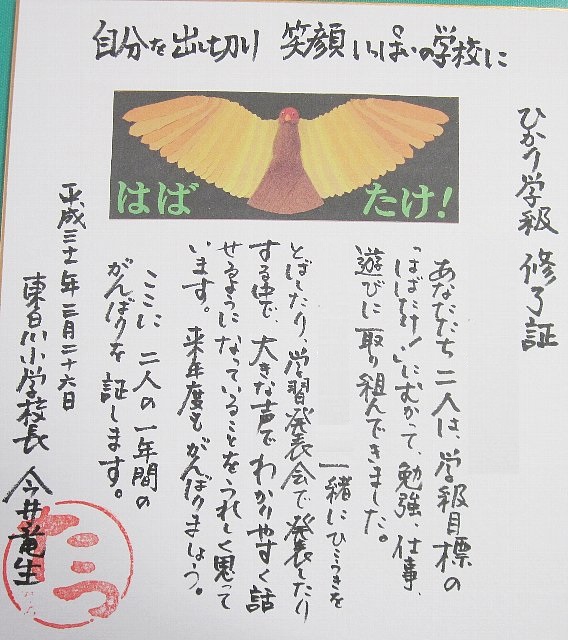 自分を出し切り 笑顔いっぱいの学校に
はばたけ！
ひかり学級 修了証
あなたたち二人は、学級目標の
「はばたけ！」にむかって、勉強、仕事、
遊びに取り組んできました。
一緒にひこうきを
とばしたり、学習発表会で発表したり
する中で、大きな声でわかりやすく話
せるようになっていることをうれしく思って
います。来年度もがんばりましょう。
ここに二人の一年間の
がんばりを証します。
平成三十一年三月二十六日
東川小学校長 今井竜生
たつ